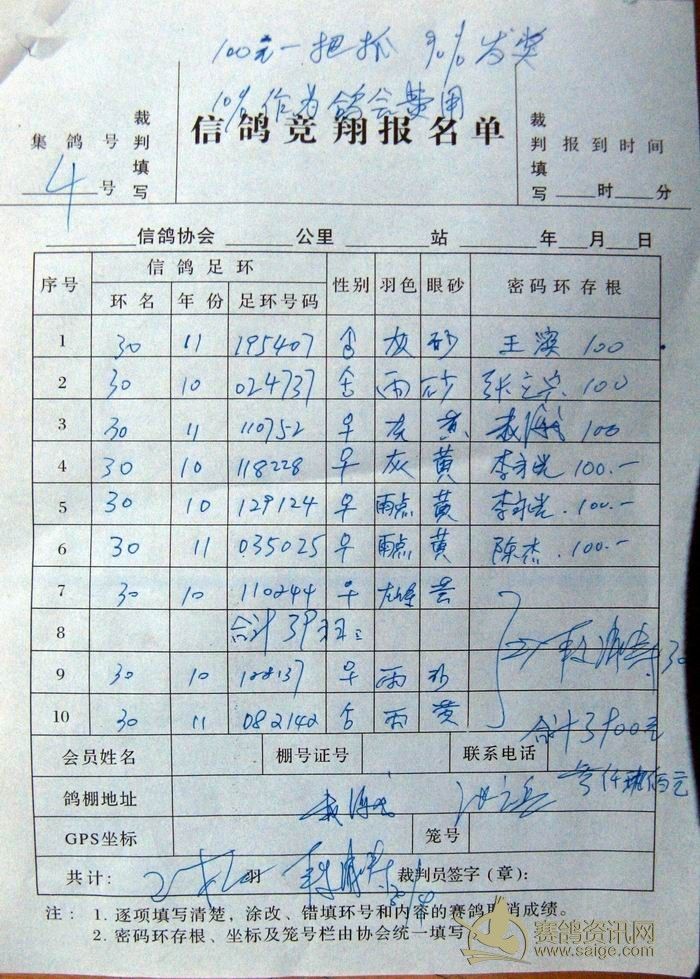 100元一把抓 90%发奖
10%作为鸽会费用
信鸽竞翔报名单
集鸽号 裁判填写
4号
裁判填写 报到时间
时 分
信鸽协会 公里 站 年 月 日
序号 信鸽足环 性别 羽色 眼砂 密码环存根
环名 年份 足环号码
1 30 11 195407 灰 砂 王 100
2 30 10 024737 雨 砂 张 100
3 30 11 110752 灰 黄 100
4 30 10 118228 早 灰 黄 李 100.-
5 30 10 129124 早 雨点 黄 李 100.-
6 30 11 035025 早 雨点 黄 陈杰 100.-
7 30 10 110244
8 合计39羽
9 30 10 雨 砂
10 30 11 082142 雨 黄
合计3900元
会员姓名 棚号证号 联系电话
鸽棚地址
GPS坐标 笼号
共计: 羽 裁判员签字(章):
注: 1. 逐项填写清楚，涂改、错填环号和内容的赛鸽取消成绩。
2. 密码环存根、坐标及笼号栏由协会统一填写
赛鸽资讯网
www.saige.com